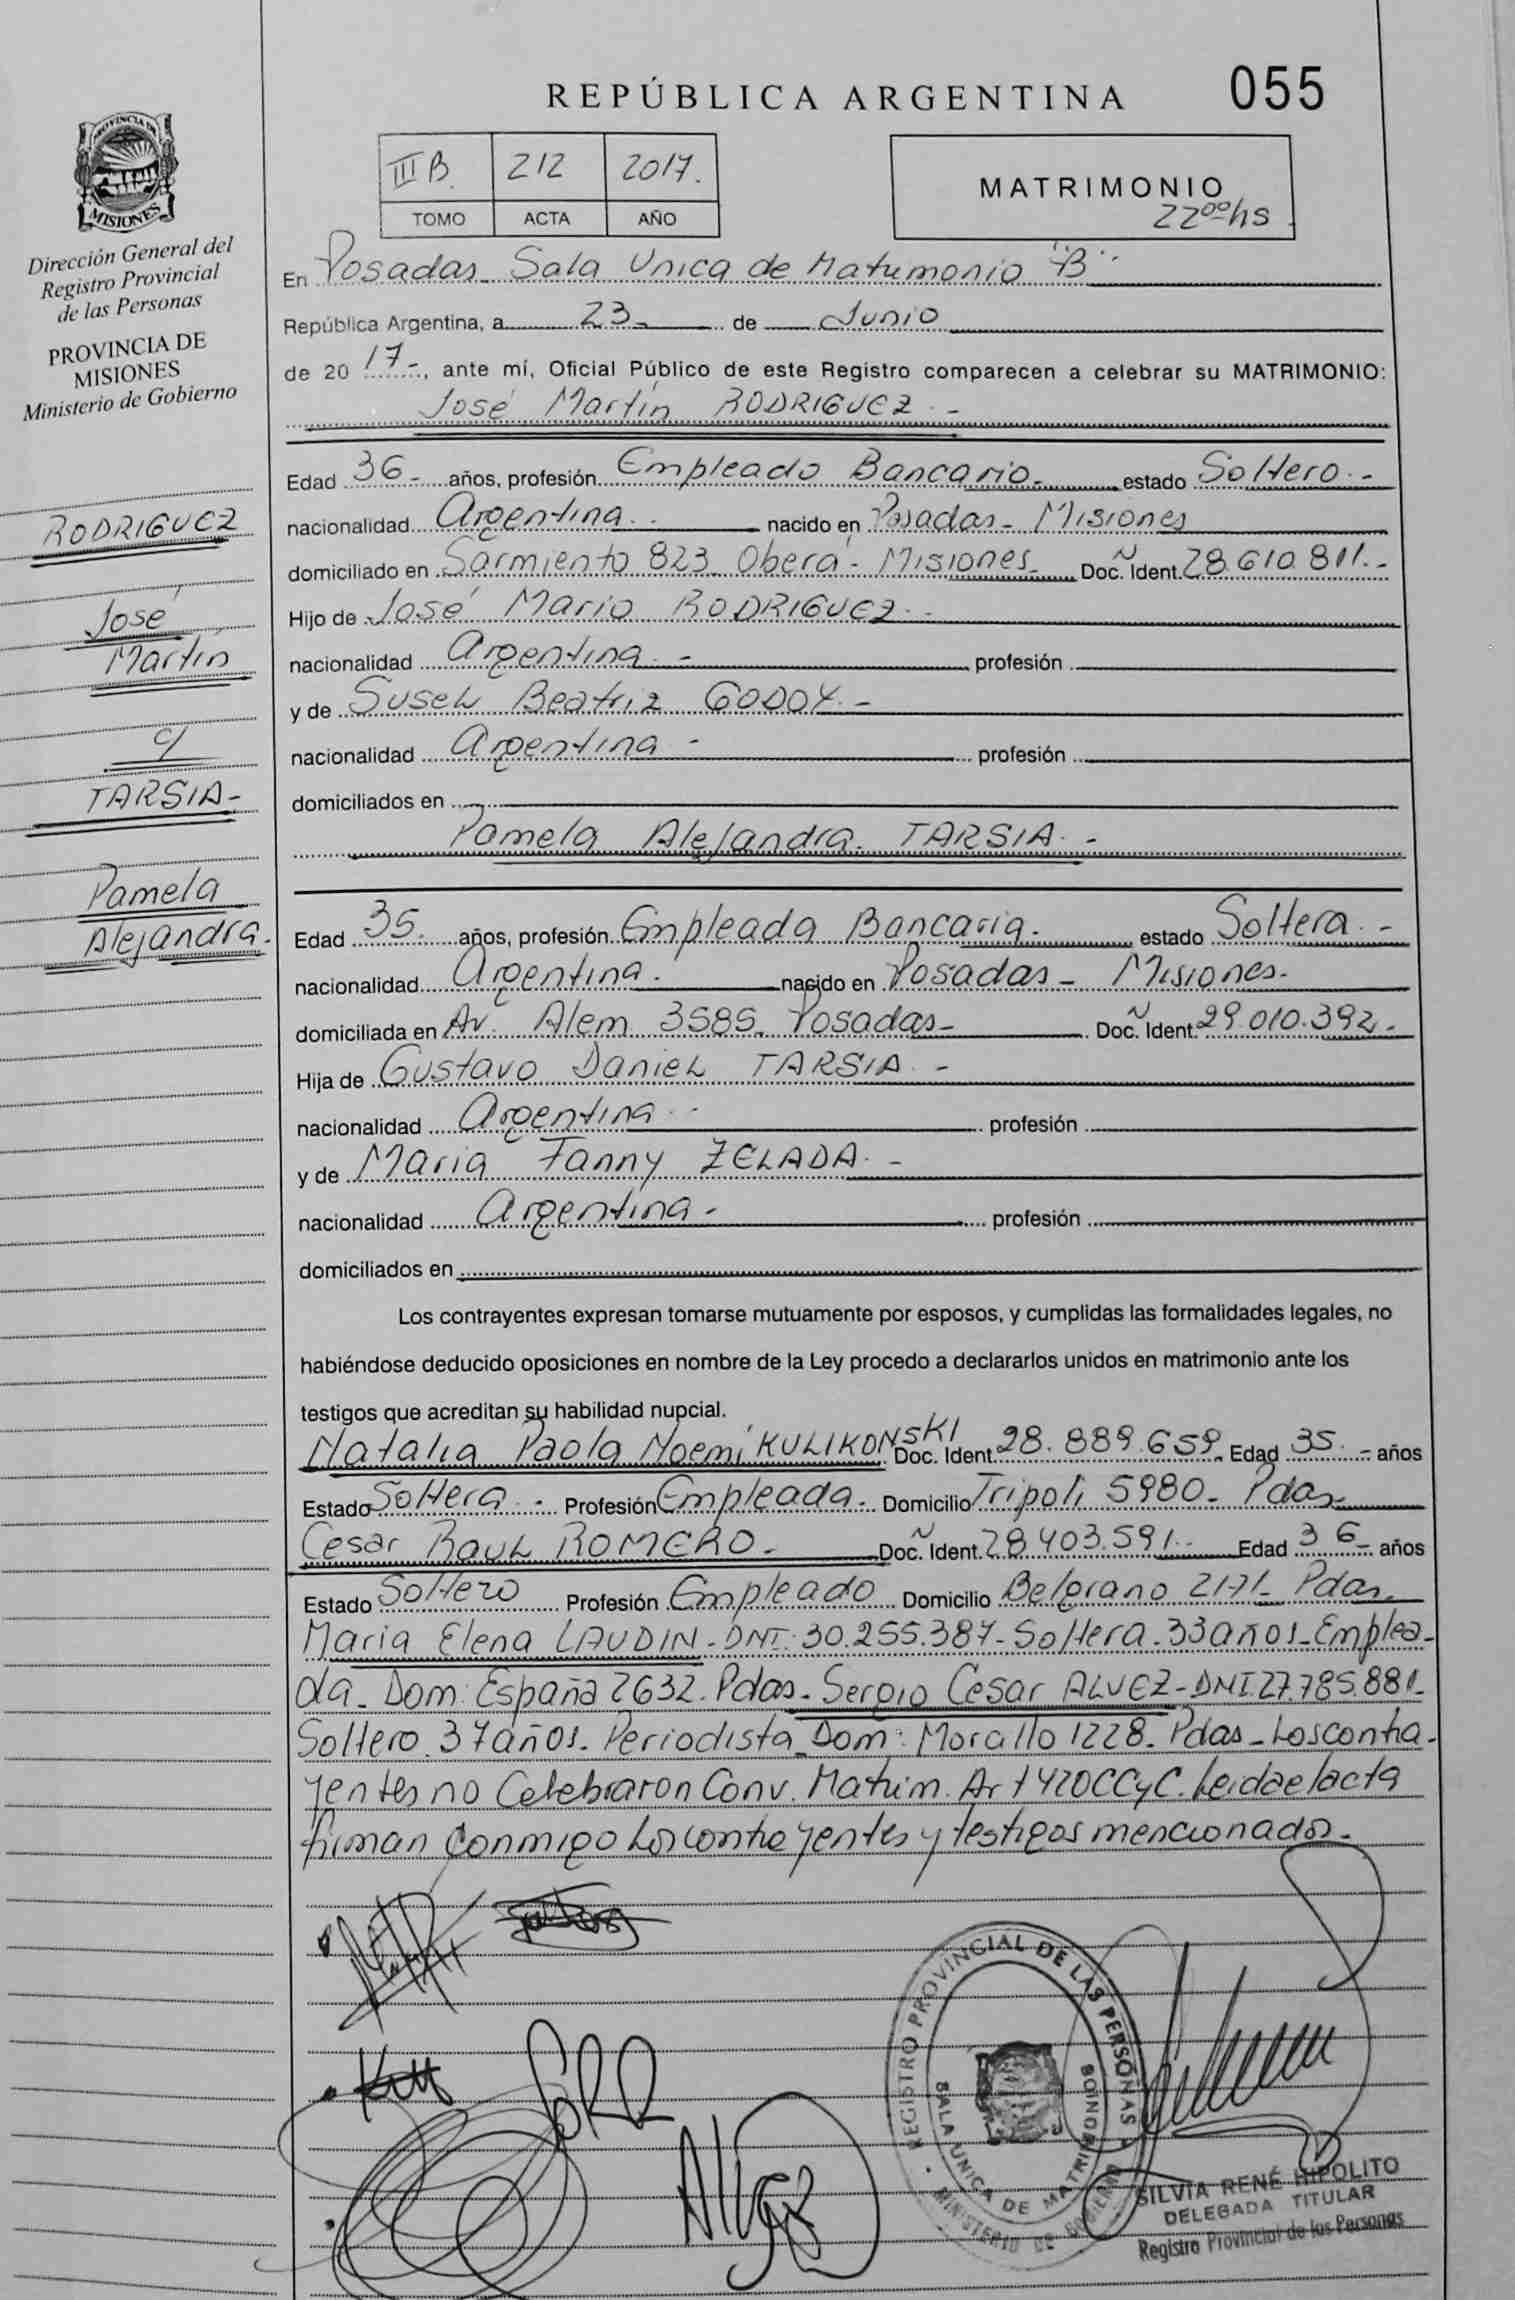 REPÚBLICA ARGENTINA 055
PROVINCIA DE
MISIONES
III B. 212 2017.
TOMO ACTA AÑO
MATRIMONIO
22ºº hs.
Dirección General del
Registro Provincial
de las Personas
PROVINCIA DE
MISIONES
Ministerio de Gobierno
RODRIGUEZ
José
Martín
c/
TARSIA-
Pamela
Alejandra.
En Posadas_ Sala Unica de Matrimonio "B"
República Argentina, a 23_ de Junio
de 20 17-, ante mí, Oficial Público de este Registro comparecen a celebrar su MATRIMONIO:
José Martín RODRIGUEZ.-
Edad 36- años, profesión Empleado Bancario_ estado Soltero.-
nacionalidad Argentina.- nacido en Posadas_ Misiones
domiciliado en Sarmiento 823_ Oberá- Misiones_ Doc. Ident. 28.610.811.-
Hijo de José Mario RODRIGUEZ.-
nacionalidad Argentina.- profesión
y de SuseL Beatriz GODOY.-
nacionalidad Argentina- profesión
domiciliados en
Pamela Alejandra. TARSIA.-
Edad 35. años, profesión Empleada Bancaria. estado Soltera.-
nacionalidad Argentina. nacido en Posadas_ Misiones.
domiciliada en Av. Alem 3585_ Posadas_ Doc. Ident. 29.010.392.-
Hija de Gustavo DanieL TARSIA.-
nacionalidad Argentina.- profesión
y de Maria Fanny ZELADA.-
nacionalidad Argentina- profesión
domiciliados en
Los contrayentes expresan tomarse mutuamente por esposos, y cumplidas las formalidades legales, no
habiéndose deducido oposiciones en nombre de la Ley procedo a declararlos unidos en matrimonio ante los
testigos que acreditan su habilidad nupcial.
Natalia Paola Noemí KULIKONSKI Doc. Ident. 28.889.659. Edad 35.- años
Estado Soltera.- Profesión Empleada. Domicilio Tripoli 5980_ Pdas_
Cesar RauL ROMERO_ Doc. Ident. 28.403.591.- Edad 36_ años
Estado Soltero Profesión Empleado Domicilio Belgrano 2171_ Pdas.
Maria Elena LAUDIN_DNI:30.255.387-Soltera.33años_Emplea-
da_ Dom: España 2632. Pdas_ Sergio Cesar ALVEZ-DNI.27.785.881_
Soltero.37años_Periodista_Dom: Moratto 1228_ Pdas_Los contra-
yentes no Celebraron Conv. Matrim. Art 420 CCyC. Leida el acta
firman conmigo Los contrayentes y testigos mencionados_
REGISTRO PROVINCIAL DE LAS PERSONAS
SALA UNICA DE MATRIMONIOS
MINISTERIO DE GOBIERNO
SILVIA RENÉ HIPOLITO
DELEGADA TITULAR
Registro Provincial de las Personas